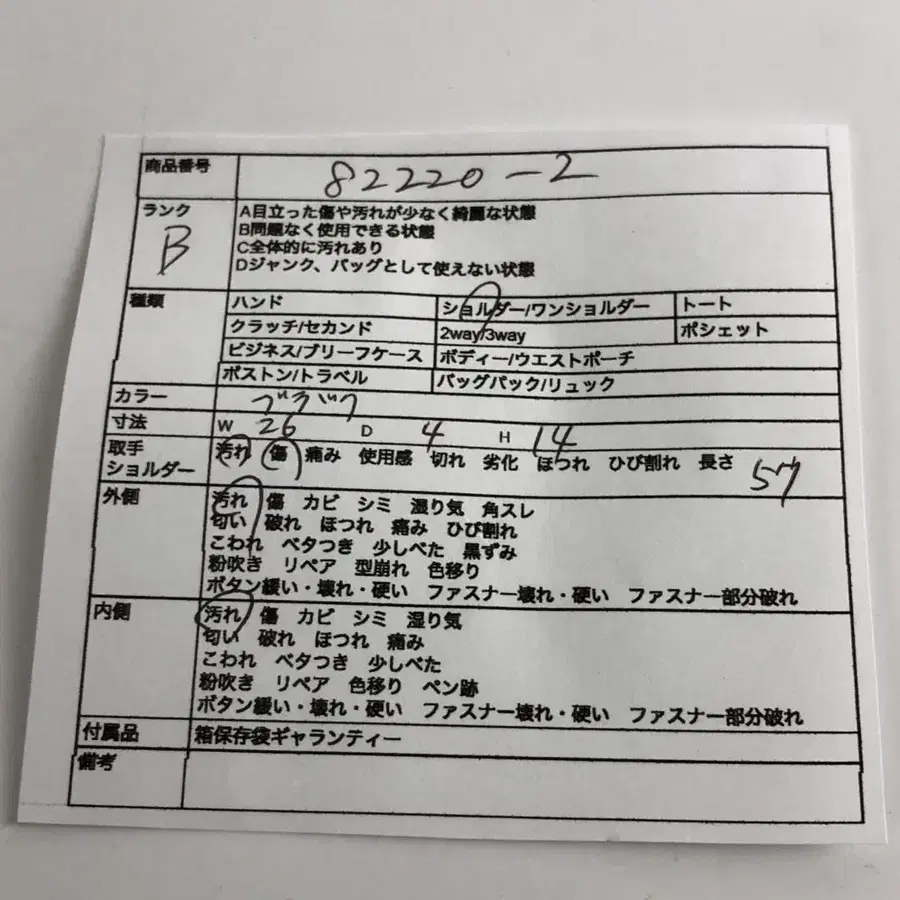 商品番号 82220-2
ランク B
A目立った傷や汚れが少なく綺麗な状態
B問題なく使用できる状態
C全体的に汚れあり
Dジャンク、バッグとして使えない状態
種類 ハンド ショルダー/ワンショルダー トート
クラッチ/セカンド 2way/3way ポシェット
ビジネス/ブリーフケース ボディー/ウエストポーチ
ボストン/トラベル バッグパック/リュック
カラー ブラック
寸法 W 26 D 4 H 14
取手 汚れ 傷 痛み 使用感 切れ 劣化 ほつれ ひび割れ 長さ 57
ショルダー
外側 汚れ 傷 カビ シミ 湿り気 角スレ
匂い 破れ ほつれ 痛み ひび割れ
こわれ ベタつき 少しべた 黒ずみ
粉吹き リペア 型崩れ 色移り
ボタン緩い・壊れ・硬い ファスナー壊れ・硬い ファスナー部分破れ
内側 汚れ 傷 カビ シミ 湿り気
匂い 破れ ほつれ 痛み
こわれ ベタつき 少しべた
粉吹き リペア 色移り ペン跡
ボタン緩い・壊れ・硬い ファスナー壊れ・硬い ファスナー部分破れ
付属品 箱保存袋ギャランティー
備考